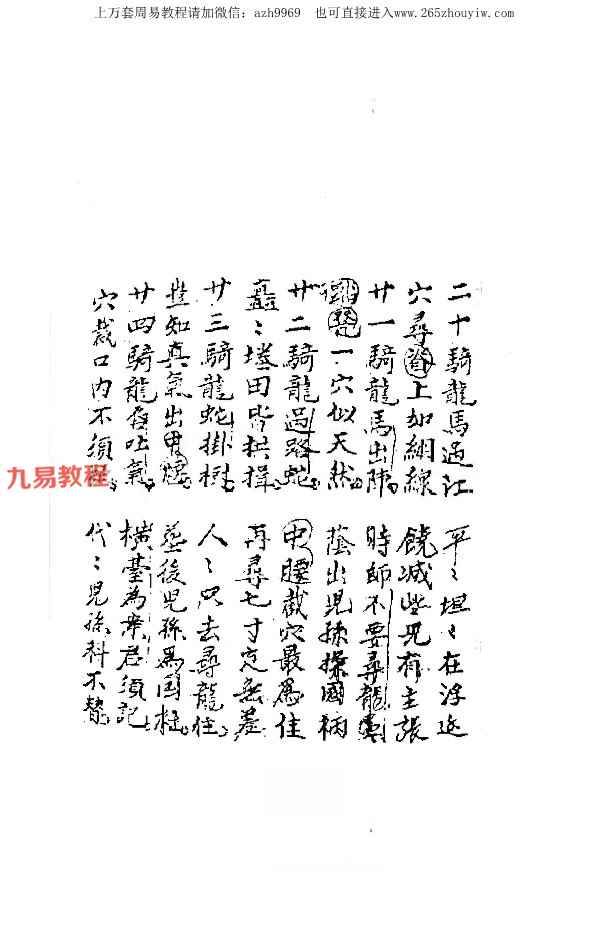 上万套周易教程请加微信：azh9969　也可直接进入www.265zhouyiw.com
二十騎龍馬過江　平〻坦〻在浮沤
穴尋脊上如綱線　饒减些児有主張
廿一騎龍馬出陣　時師不要尋龍
一穴似天然　蔭出児孫操國柄
廿二騎龍過路蛇　中腰截穴最爲佳
矗〻墱田皆拱揖　再尋七寸定無差
廿三騎龍蛇掛樹　人〻只去尋龍住
豈知真氣出　塟後児孫爲国柱
廿四騎龍吐氣　橫臺為案君須記
穴裁口内不須　代〻児孫科不替
九易教程